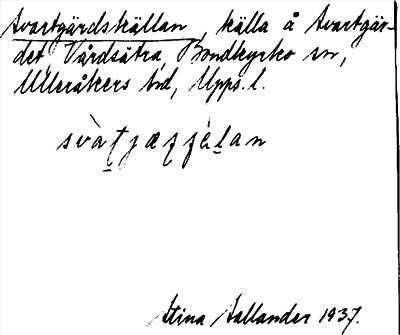 Svartgärdskällan, källa å Svartgär-
det, Vårdsätra, Bondkyrko sn,
Ulleråkers hd, Upps. l.
Stina Hallander 1937.